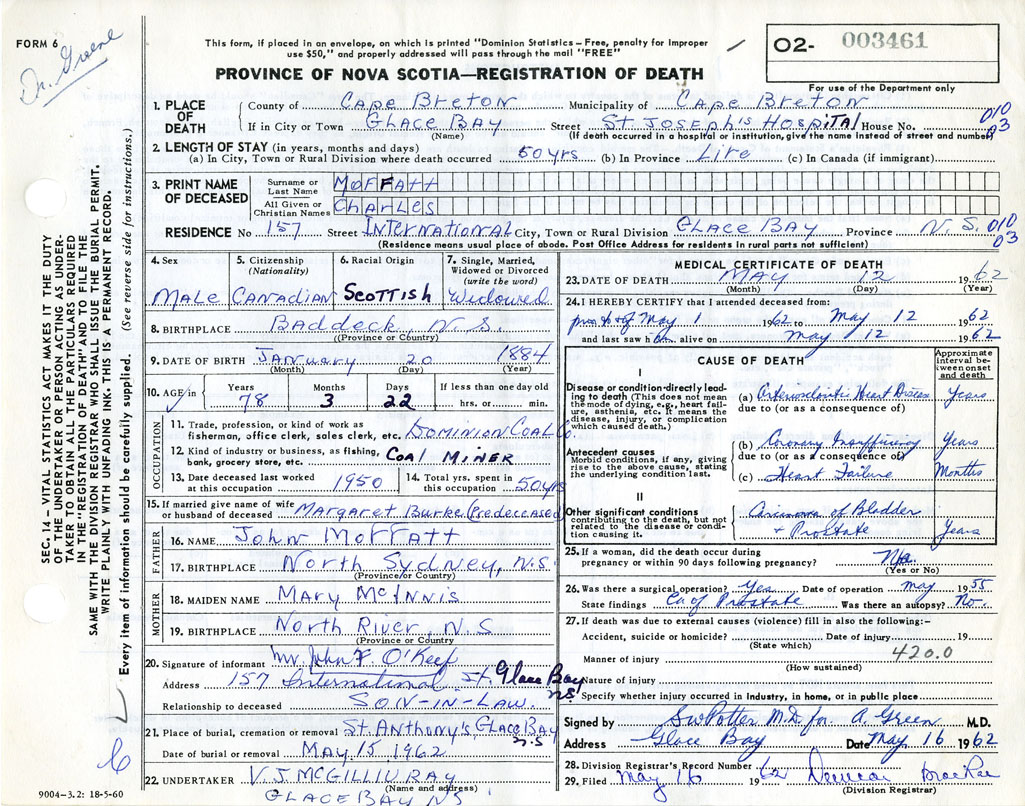 FORM 6
Dr. Greene
This form, if placed in an envelope, on which is printed "Dominion Statistics – Free, penalty for improper
use $50," and properly addressed will pass through the mail "FREE"
PROVINCE OF NOVA SCOTIA—REGISTRATION OF DEATH
02- 003461
For use of the Department only
SEC. 14 – VITAL STATISTICS ACT MAKES IT THE DUTY
OF THE UNDERTAKER OR PERSON ACTING AS UNDER-
TAKER TO OBTAIN ALL THE PARTICULARS REQUIRED
IN THE "REGISTRATION OF DEATH" AND TO FILE THE
SAME WITH THE DIVISION REGISTRAR WHO SHALL ISSUE THE BURIAL PERMIT.
WRITE PLAINLY WITH UNFADING INK. THIS IS A PERMANENT RECORD.
Every item of information should be carefully supplied. (See reverse side for instructions.)
1. PLACE OF DEATH
County of Cape Breton Municipality of Cape Breton
If in City or Town Glace Bay Street St. Joseph's Hospital House No.
(Name) (If death occurred in a hospital or institution, give the name instead of street and number)
010
03
2. LENGTH OF STAY (in years, months and days)
(a) In City, Town or Rural Division where death occurred 50 yrs (b) In Province Life (c) In Canada (if immigrant)
3. PRINT NAME OF DECEASED
Surname or Last Name MOFFATT
All Given or Christian Names Charles
RESIDENCE No 157 Street International City, Town or Rural Division Glace Bay Province N.S. 010
03
(Residence means usual place of abode. Post Office Address for residents in rural parts not sufficient)
4. Sex Male
5. Citizenship (Nationality) Canadian
6. Racial Origin Scottish
7. Single, Married, Widowed or Divorced (write the word) Widowed
8. BIRTHPLACE Baddeck, N.S.
(Province or Country)
9. DATE OF BIRTH January 20 1884
(Month) (Day) (Year)
10. AGE Years 78 Months 3 Days 22 If less than one day old
hrs. or min.
OCCUPATION
11. Trade, profession, or kind of work as
fisherman, office clerk, sales clerk, etc. Dominion Coal Co.
12. Kind of industry or business, as fishing,
bank, grocery store, etc. Coal Miner
13. Date deceased last worked
at this occupation 1950
14. Total yrs. spent in
this occupation 50 yrs
15. If married give name of wife
or husband of deceased Margaret Burke (Predeceased)
FATHER
16. NAME John Moffatt
17. BIRTHPLACE North Sydney, N.S.
(Province/or Country)
MOTHER
18. MAIDEN NAME Mary McInnis
19. BIRTHPLACE North River, N.S
(Province or Country)
20. Signature of informant Mr. John F. O'Keef
Address 157 International St. Glace Bay
N.S.
Relationship to deceased SON-IN-LAW.
21. Place of burial, cremation or removal St. Anthony's Glace Bay
N.S
Date of burial or removal May 15, 1962
22. UNDERTAKER V. J. McGILLIVRAY
(Name and address)
GLACE BAY NS
9004–3.2: 18-5-60
MEDICAL CERTIFICATE OF DEATH
23. DATE OF DEATH May 12 1962
(Month) (Day) (Year)
24. I HEREBY CERTIFY that I attended deceased from:
May 1 1962 to May 12 1962
and last saw him alive on May 12 1962
CAUSE OF DEATH
Approximate interval between onset and death
I
Disease or condition directly lead-
ing to death (This does not mean
the mode of dying, e.g., heart fail-
ure, asthenia, etc. It means the
disease, injury, or complication
which caused death.)
(a) Heart Disease Years
due to (or as a consequence of)
Antecedent causes
Morbid conditions, if any, giving
rise to the above cause, stating
the underlying condition last.
(b) Coronary Insufficiency Years
due to (or as a consequence of)
(c) Heart Failure Months
II
Other significant conditions
contributing to the death, but not
related to the disease or condi-
tion causing it.
Carcinoma of Bladder
+ Prostate Years
25. If a woman, did the death occur during
pregnancy or within 90 days following pregnancy?
(Yes or No)
26. Was there a surgical operation? Yes Date of operation May 1955
State findings Ca of Prostate Was there an autopsy? No.
27. If death was due to external causes (violence) fill in also the following:-
Accident, suicide or homicide? Date of injury 19
(State which)
420.0
Manner of injury
(How sustained)
Nature of injury
Specify whether injury occurred in Industry, in home, or in public place
Signed by S W Potter M.D. for A. Green M.D.
Address Glace Bay Date May 16 1962
28. Division Registrar's Record Number
29. Filed May 16 1962 Duncan
(Division Registrar)